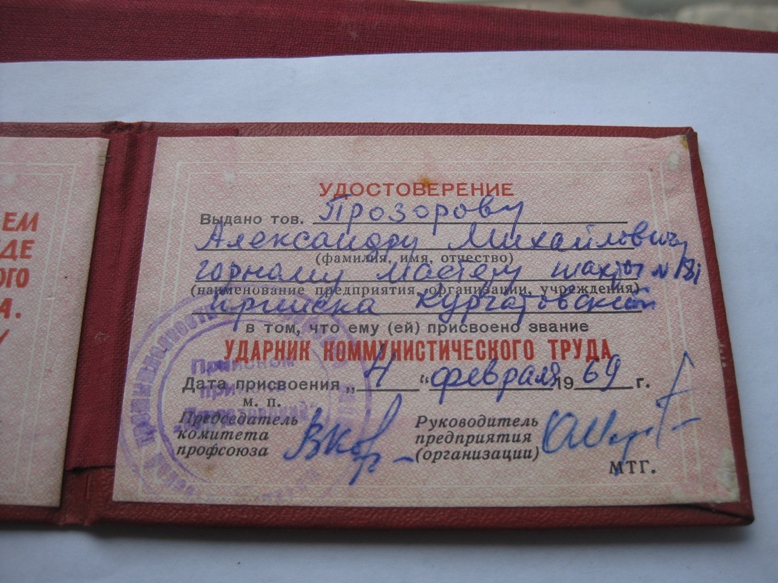 ЕМ
ДЕ
ОГО
А.
У
УДОСТОВЕРЕНИЕ
Выдано тов. Прозорову
Александру Михайловичу
(фамилия, имя, отчество)
горному мастеру шахты №
(наименование предприятия, организации, учреждения)
прииска Кургатовский
в том, что ему (ей) присвоено звание
УДАРНИК КОММУНИСТИЧЕСКОГО ТРУДА
Дата присвоения „4“ февраля 1969 г.
м. п.
Председатель комитета профсоюза
Руководитель предприятия (организации)
МТГ.